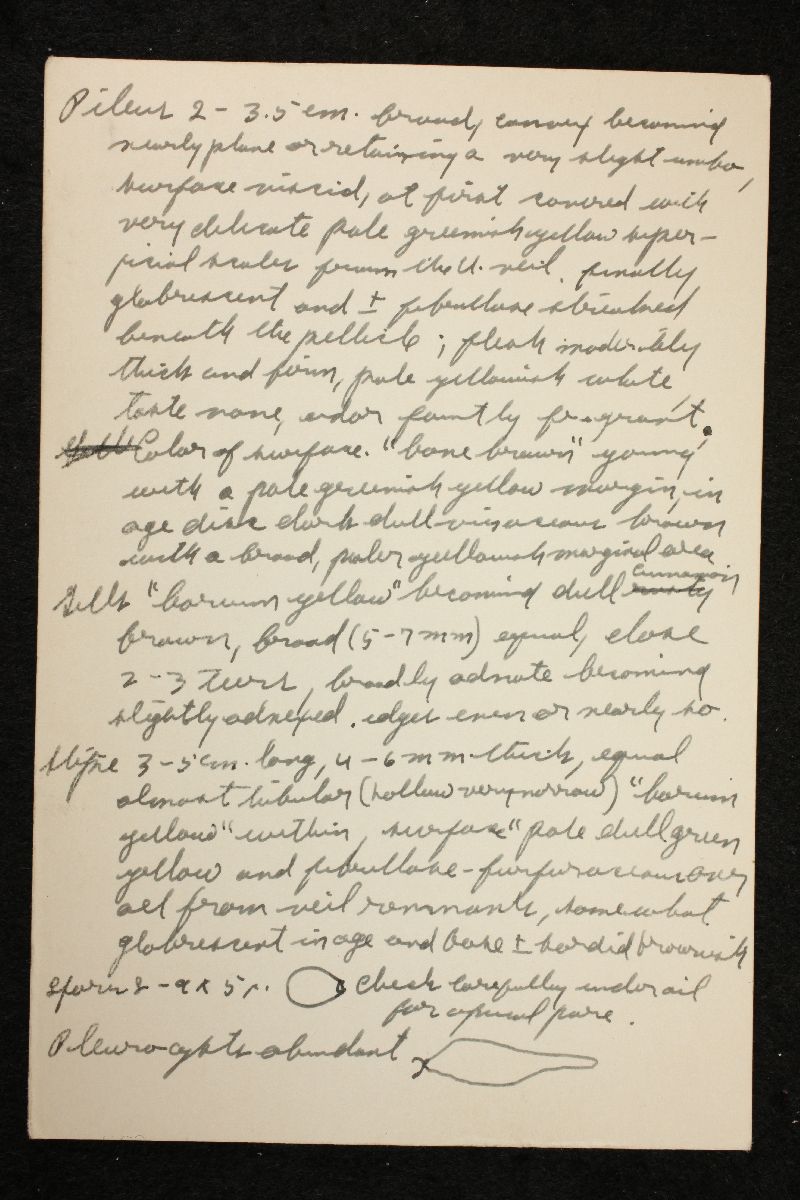 Pileus 2 - 3.5 cm. broad, convex becoming
nearly plane or retaining a very slight umbo,
surface viscid, at first covered with
very delicate pale greenish yellow super-
ficial scales from the U. veil, finally
glabrescent and ± fibrillose streaked
beneath the pellicle; flesh moderately
thick and firm, pale yellowish white,
taste none, odor faintly fragrant.
Color of surface. "bone brown" young
with a pale greenish yellow margin, in
age disk dark dull vinaceous brown
with a broad, paler yellowish marginal area
Gills "barium yellow" becoming dull cinnamon
brown, broad (5-7 mm) equal, close
2-3 tiers, broadly adnate becoming
slightly adnexed, edges even or nearly so.
Stipe 3-5 cm. long, 4-6 mm thick, equal
almost tubular (hollow very narrow) "barium
yellow" within, surface "pale dull green
yellow and fibrillose-furfuraceous over
all from veil remnants, somewhat
glabrescent in age and base ± sordid brownish
Spores 8-9 x 5 µ. Check carefully under oil
for apical pore.
Pleurocystidia abundant